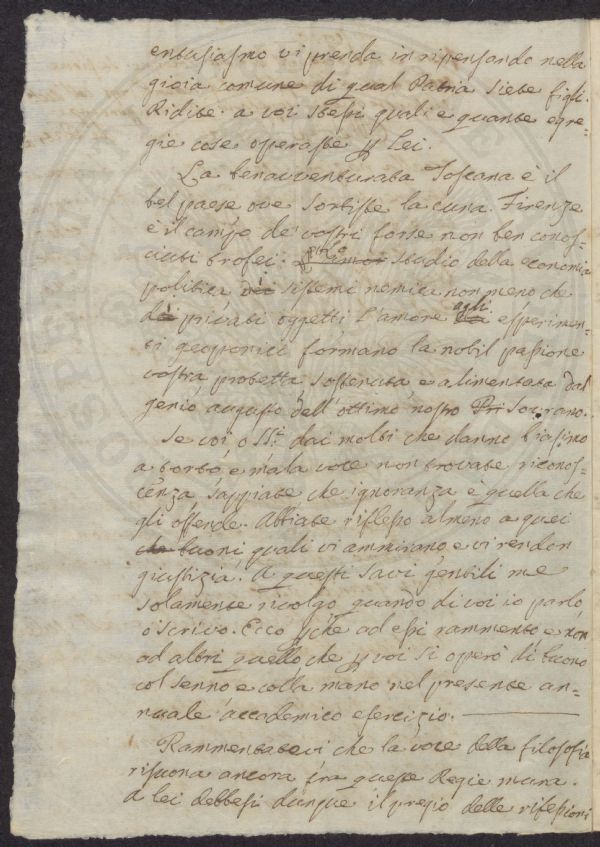 entusiasmo vi prenda in ripensando nella
gioia comune di qual Patria siete figli.
Ridite a voi stessi quali e quante egre-
gie cose operaste p Lei.
La benavventurata Toscana è il
bel paese ove sortiste la cuna. Firenze
è il campo de' vostri forse non ben conos-
ciuti trofei. studio della economia
politica dei sistemi nemica non meno che
dà privati oggetti l'amore agli esperimen-
ti geoponici formano la nobil passione
vostra protetta, sostenuta, e alimentata dal
genio augusto dell'ottimo nostro Pri Sovrano.
Se voi o SS.i dai molti che danno biasimo
a torto, e mala voce non trovate riconos-
cenza, sappiate che ignoranza è quella che
gli offende. Abbiate riflesso almeno a quei
che buoni quali vi ammirano, e vi rendon
giustizia. A questi savi gentili me
solamente rivolgo quando di voi io parlo
o scrivo. Ecco pchè ad essi rammento, e non
ad altri quello che p voi si operò di buono
col senno e colla mano nel presente an-
nuale accademico esercizio.
Rammentatevi che la voce della filosofia
risuona ancora fra queste Regie mura.
A lei debbesi dunque il pregio delle riflessioni